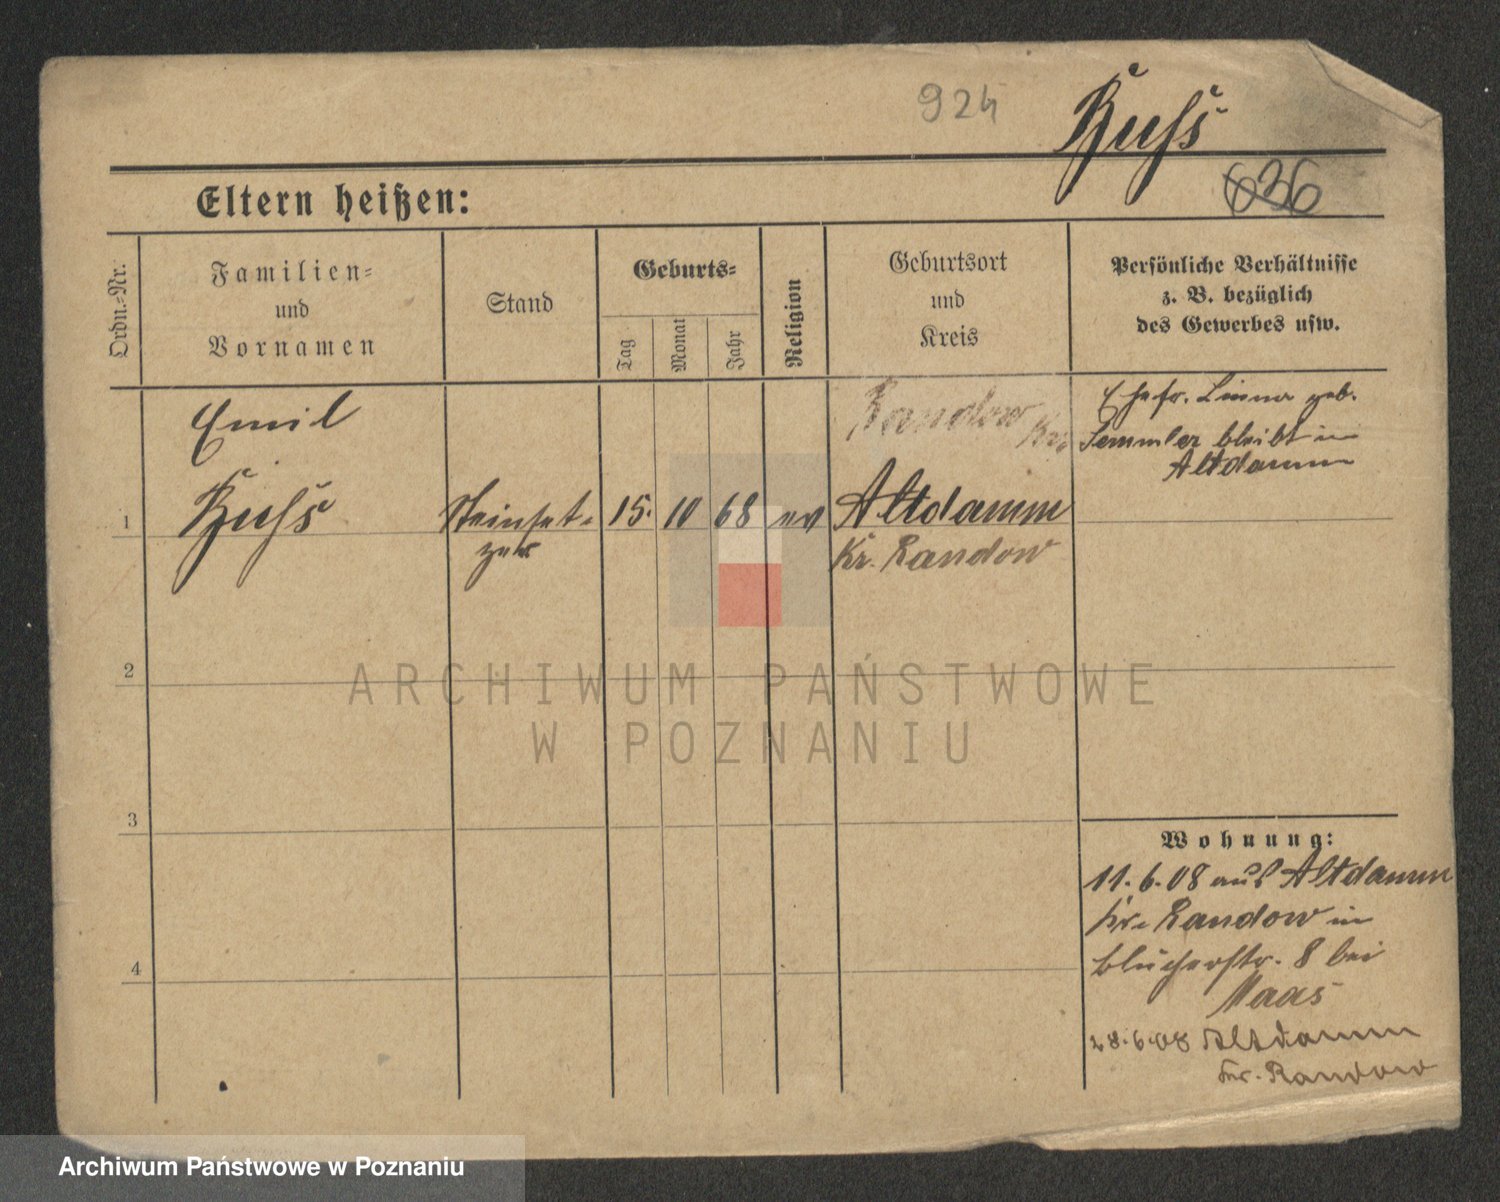 924
Ruſs
636
Eltern heißen:
Ordn.-Nr.
Familien-
und
Vornamen
Stand
Geburts-
Tag
Monat
Jahr
Religion
Geburtsort
und
Kreis
Persönliche Verhältnisse
z. B. bezüglich
des Gewerbes usw.
Emil
Ruſs
1
Steinset-
zer
15.
10
68
ev
Randow Kr.
Altdamm
Kr. Randow
Ehefr. Linna geb.
Semmler bleibt in
Altdamm
2
3
4
Wohnung:
11.6.08 aus Altdamm
Kr. Randow in
Blücherstr. 8 bei
Maas
28.6.08 Altdamm
Kr. Randow
ARCHIWUM PAŃSTWOWE
W POZNANIU
Archiwum Państwowe w Poznaniu